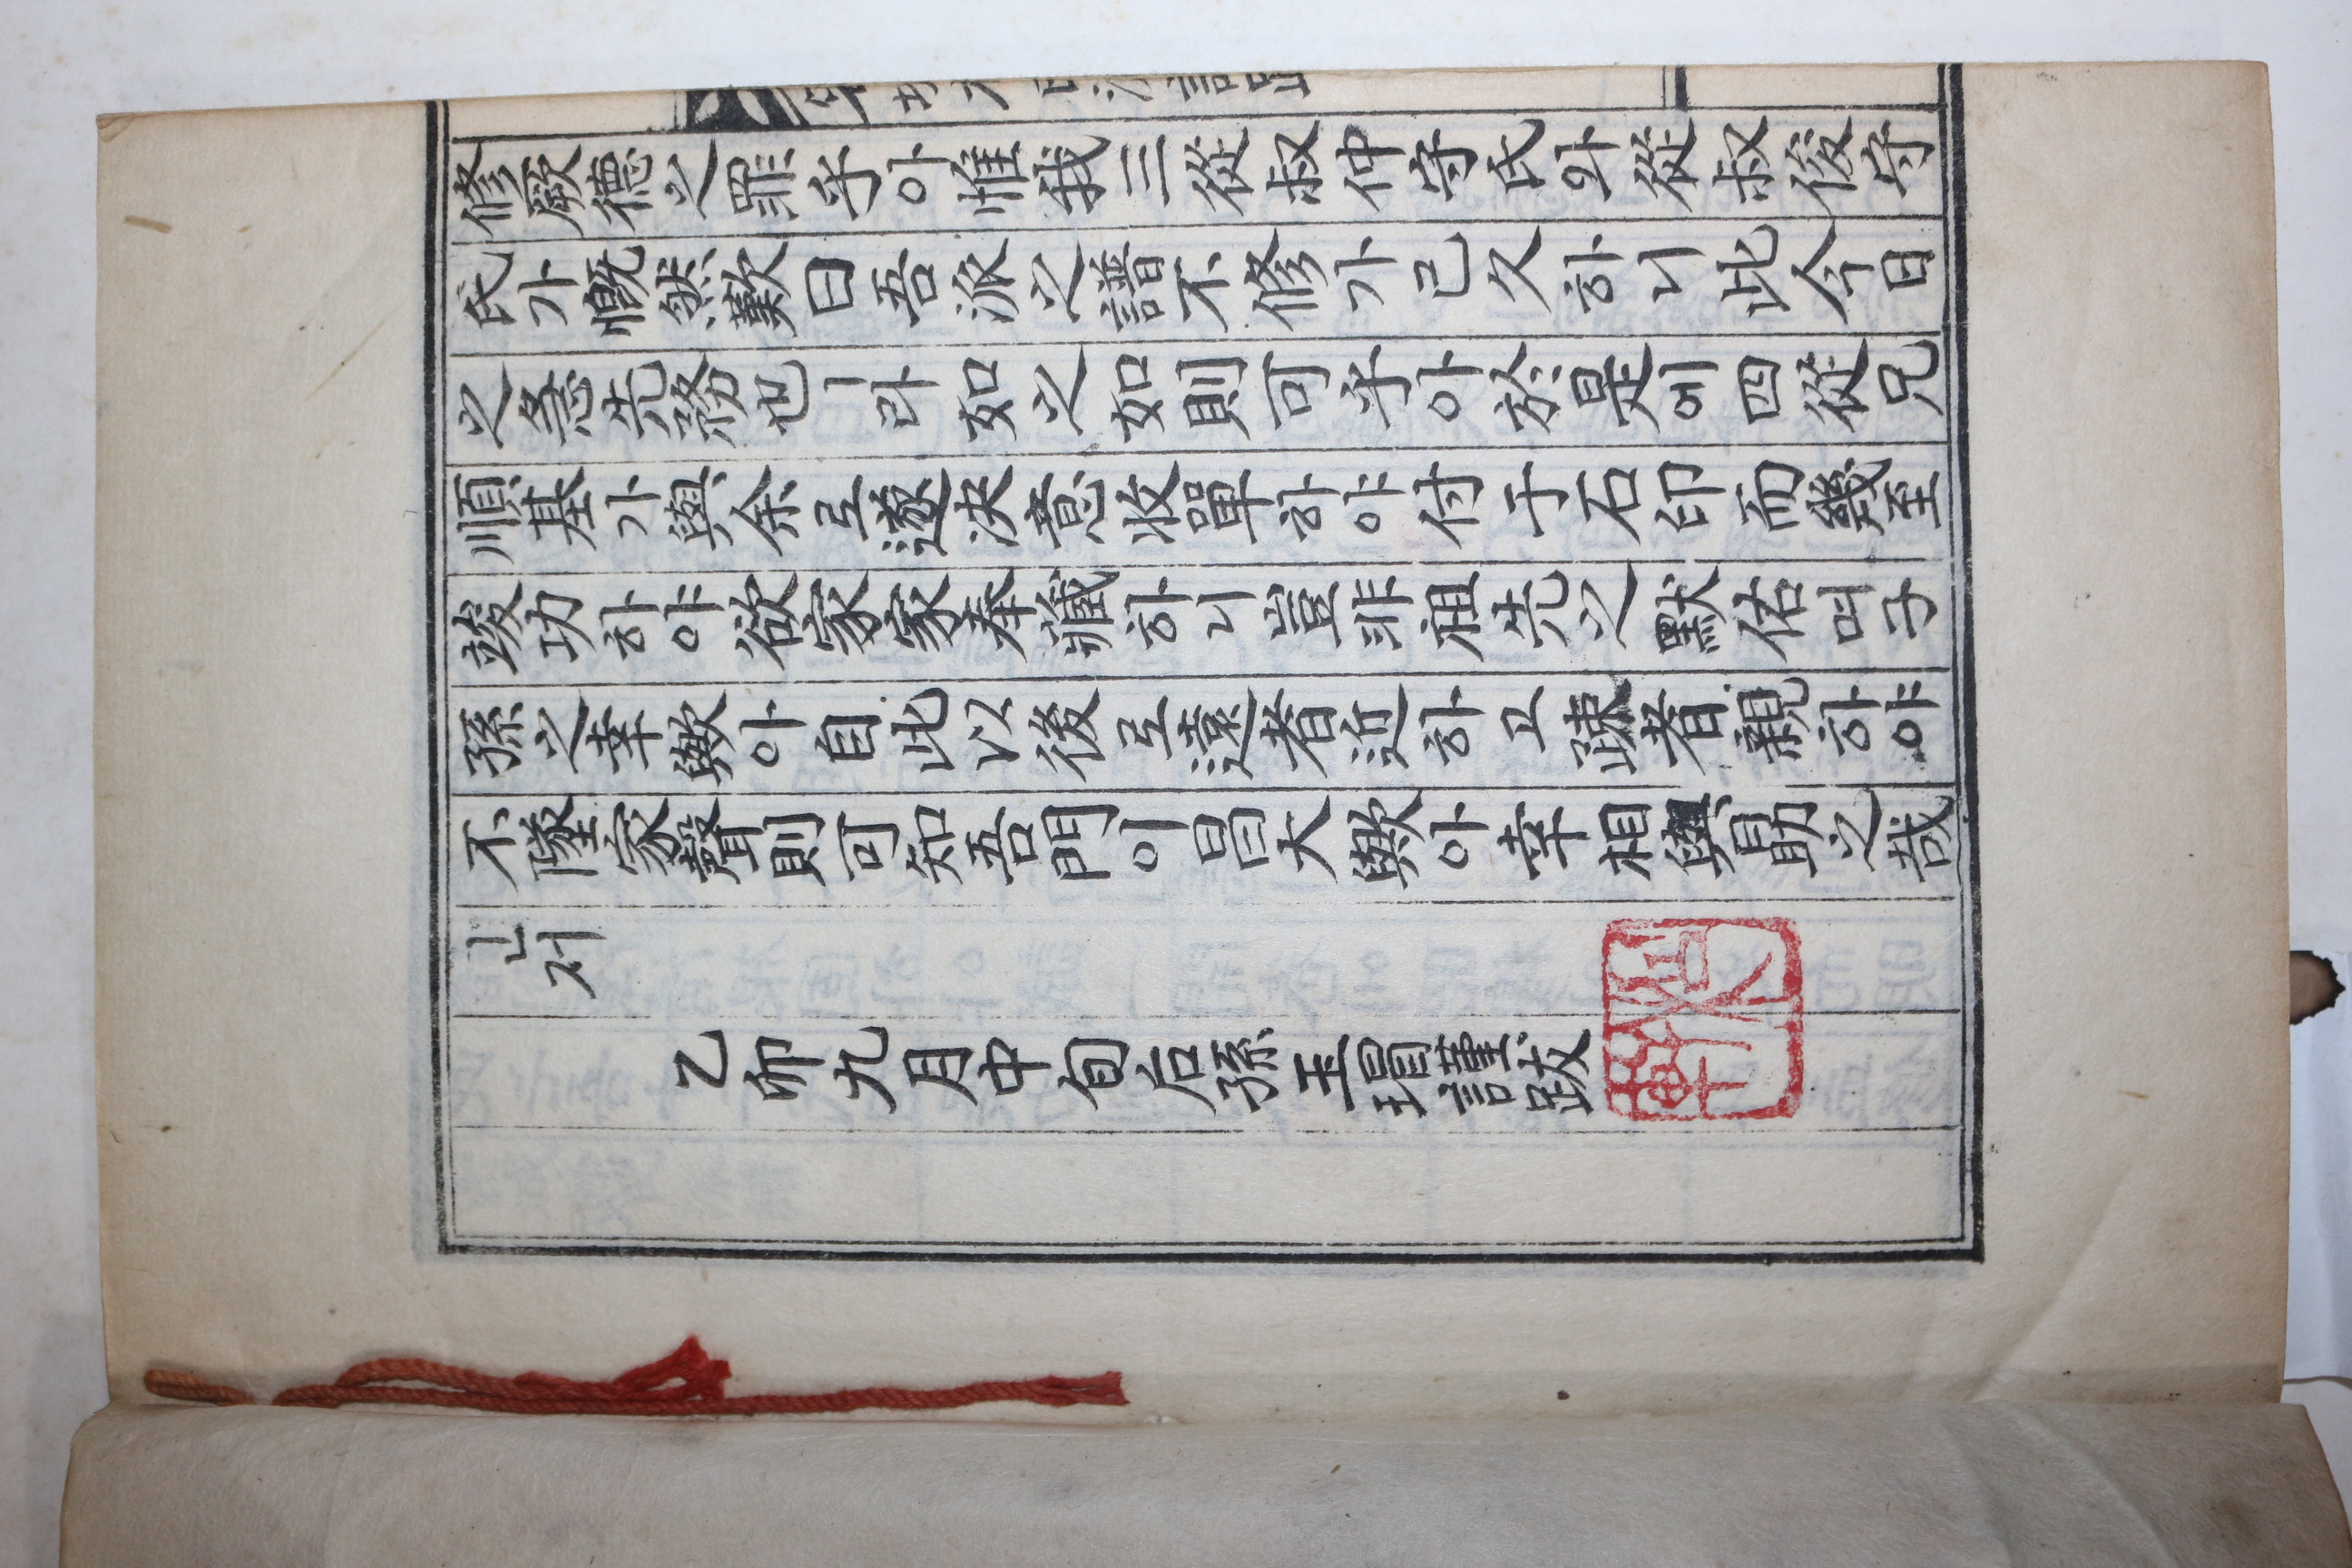 修厥德之罪乎아惟我三從叔仲守氏와從叔俊守
氏가慨然歎曰吾派之譜不修가已久하니此今日
之急先務也ㅣ라如之如則可乎아於是에四從兄
順基가與余로遂决意收單하야付于石印而幾至
竣功하야欲家家奉藏하니豈非祖先之默佑며子
孫之幸歟아自此以後로遠者近하고疎者親하야
不墜家聲則可知吾門이昌大歟아幸相與勗之哉
ㅣㄴ저
乙卯九月中旬后孫玉瑁謹跋